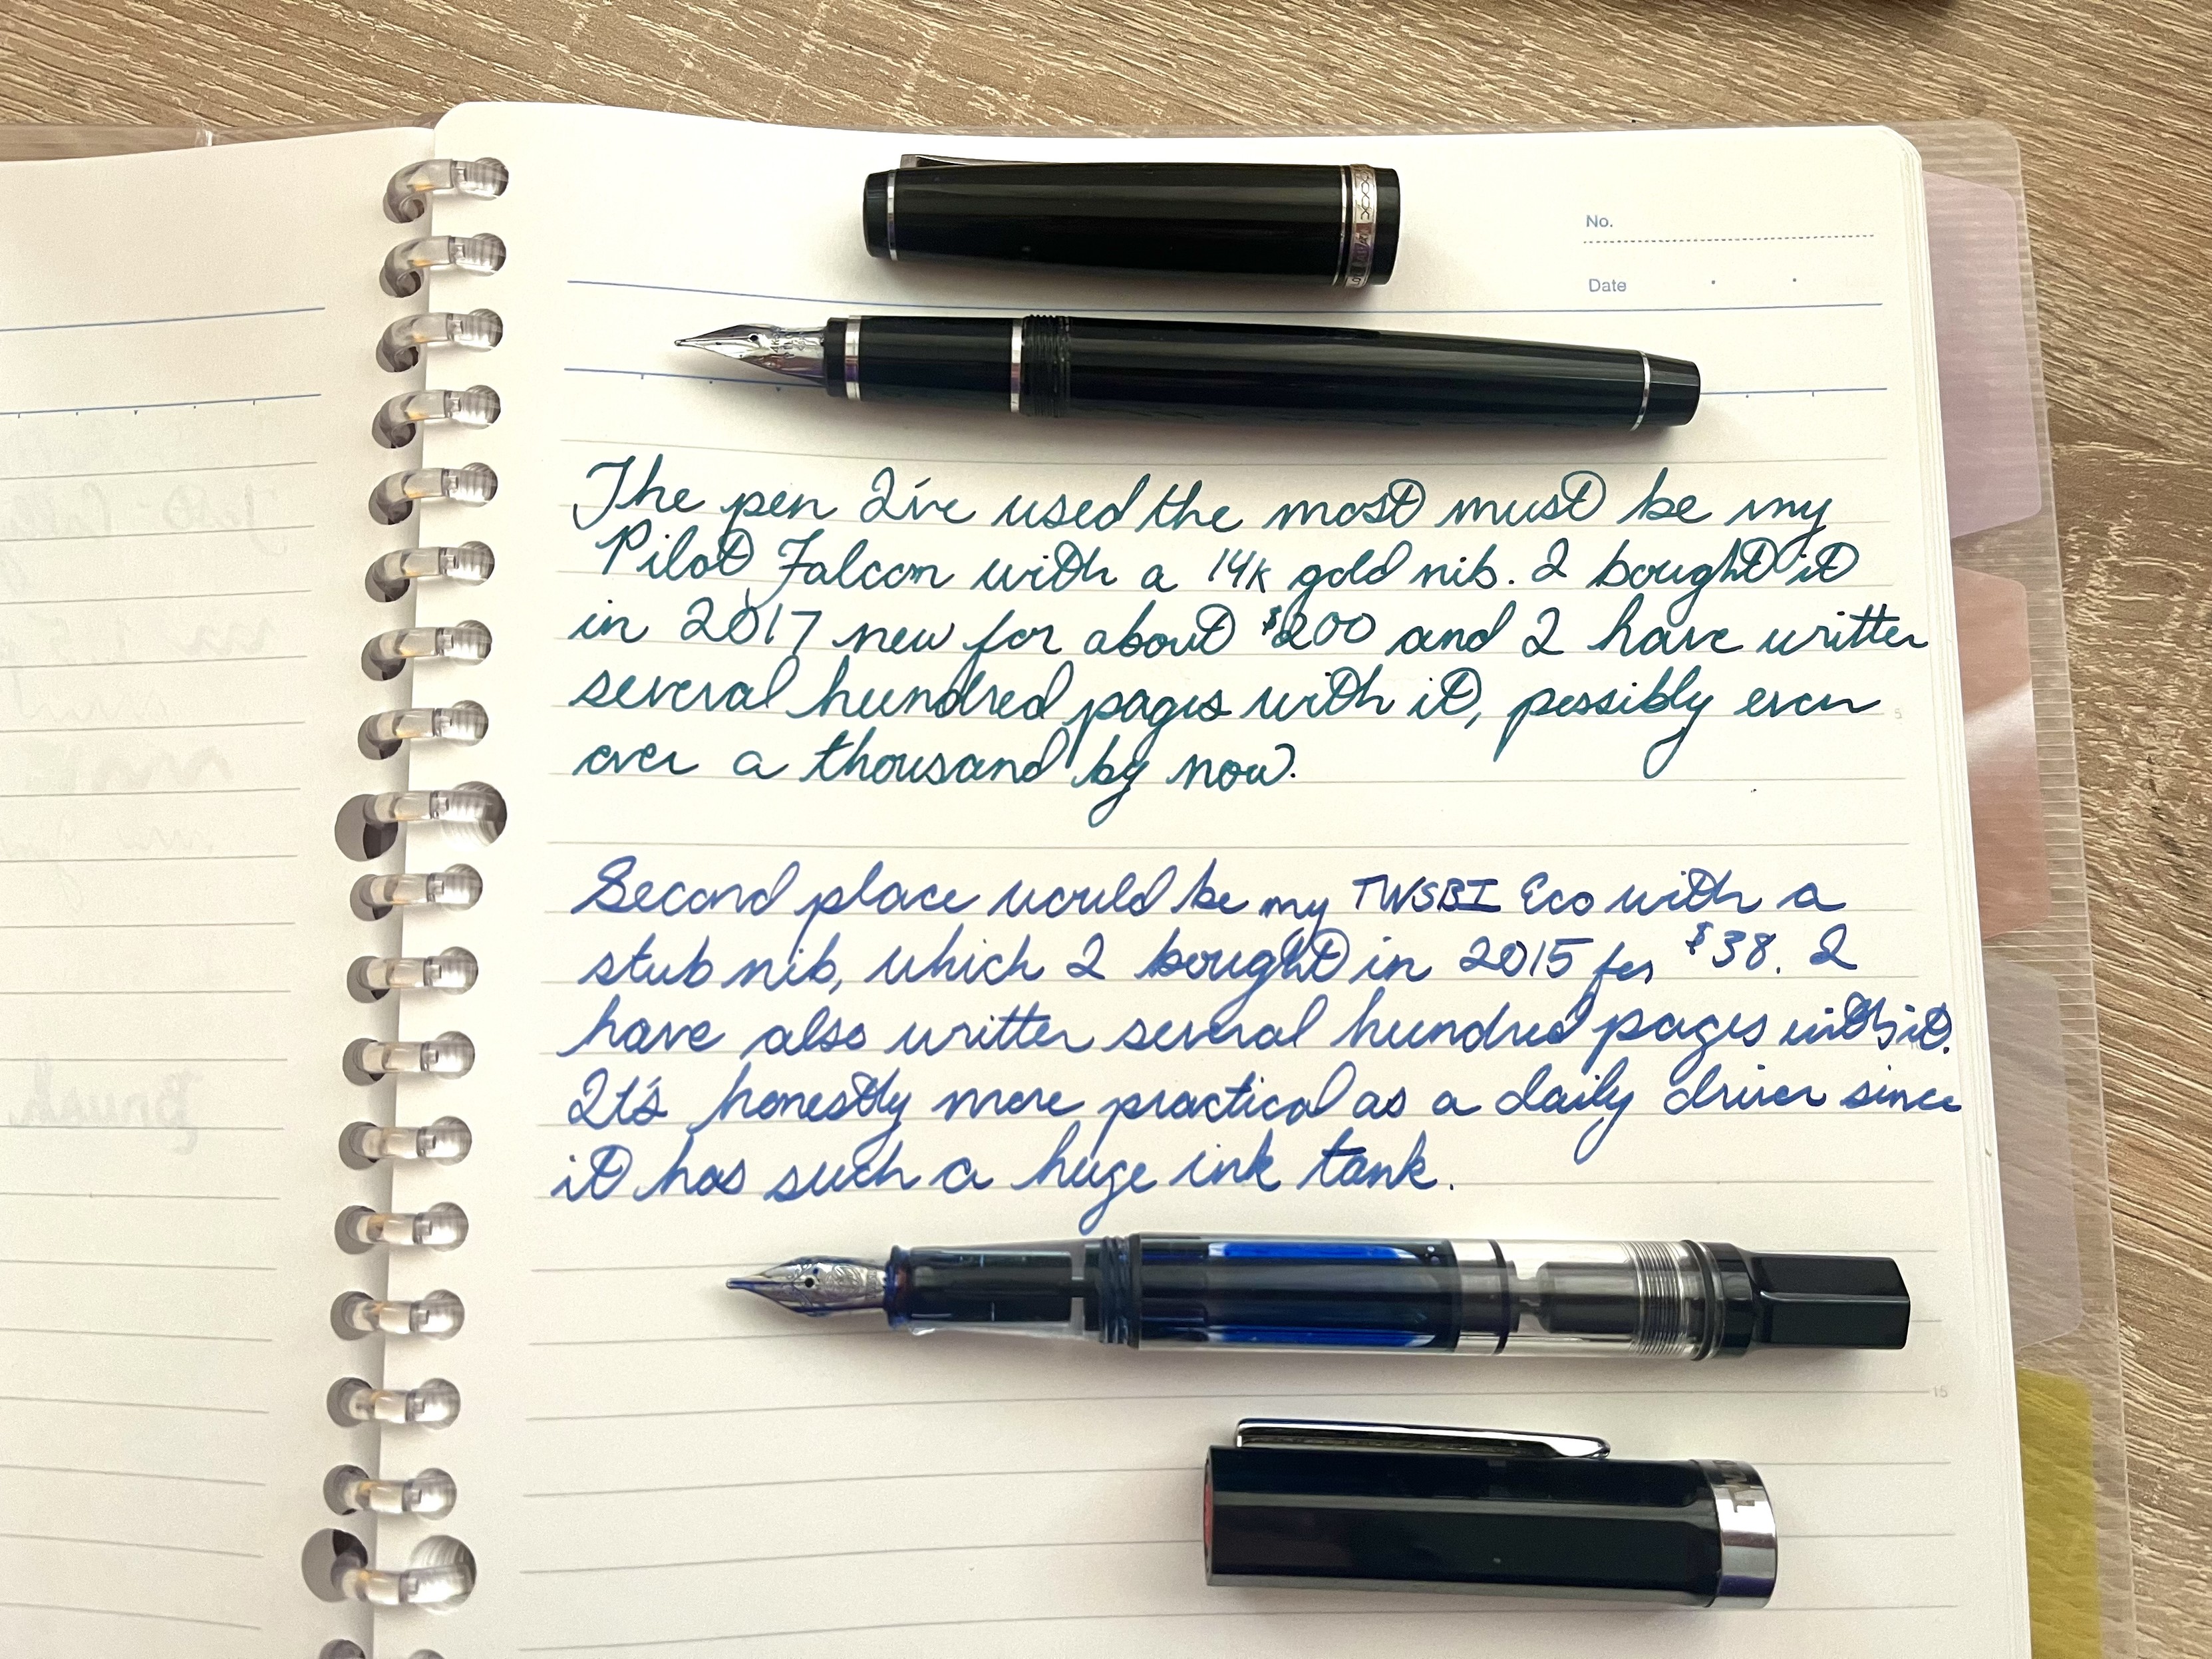 No.
Date
The pen I've used the most must be my
Pilot Falcon with a 14k gold nib. I bought it
in 2017 new for about $200 and I have written
several hundred pages with it, possibly even
5
over a thousand by now.
Second place would be my TWSBI Eco with a
stub nib, which I bought in 2015 for $38. I
have also written several hundred pages with it.
It's honestly more practical as a daily driver since
it has such a huge ink tank.
15